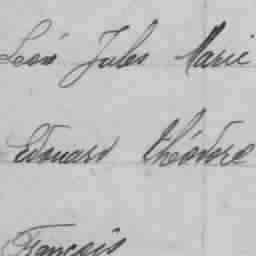 Léon Jules Marie
Edouard Théodore
François